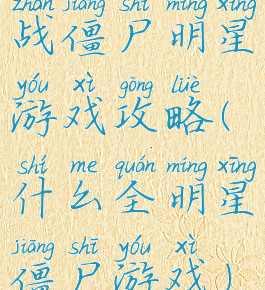 zhàn jiāng shī míng xīng
战僵尸明星
yóu xì gōng lüè
游戏攻略(
shí me quán míng xīng
什么全明星
jiāng shī yóu xì
僵尸游戏)